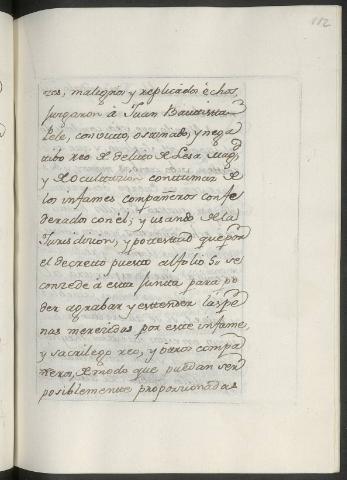 112
ros, malignos y replicados echos,
jusgaron á Juan Bautista
Pele, convicto, ostinado, y nega
tibo reo de delito de Lesa Magd
y de ocultacion contumaz de
los infames compañeros confe
derados con el; y usando de la
Jurisdicion, y potestad que por
el decreto puesto al folio 50 se
concede á esta Junta para po
der agrabar y estender las pe
nas merecidas por este infame,
y sacrilego reo, y otros compa
ñeros, de modo que puedan ser
posiblemente proporsionadas